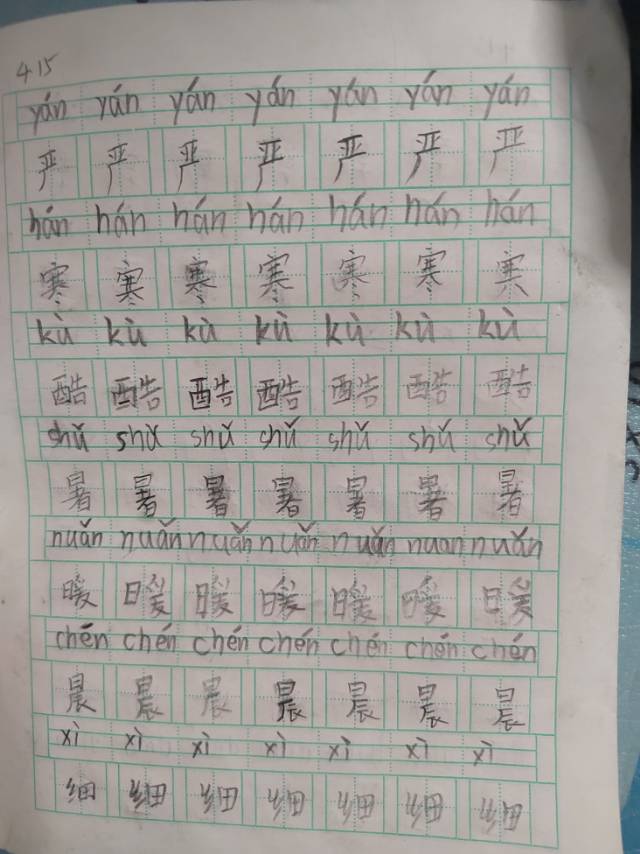 4.15
yán yán yán yán yán yán yán
严 严 严 严 严 严 严
hán hán hán hán hán hán hán
寒 寒 寒 寒 寒 寒 寒
kù kù kù kù kù kù kù
酷 酷 酷 酷 酷 酷 酷
shǔ shǔ shǔ shǔ shǔ shǔ shǔ
暑 暑 暑 暑 暑 暑 暑
nuǎn nuǎn nuǎn nuǎn nuǎn nuan nuǎn
暖 暖 暖 暖 暖 暖 暖
chén chén chén chén chén chén chén
晨 晨 晨 晨 晨 晨 晨
xì xì xì xì xì xì xì
细 细 细 细 细 细 细